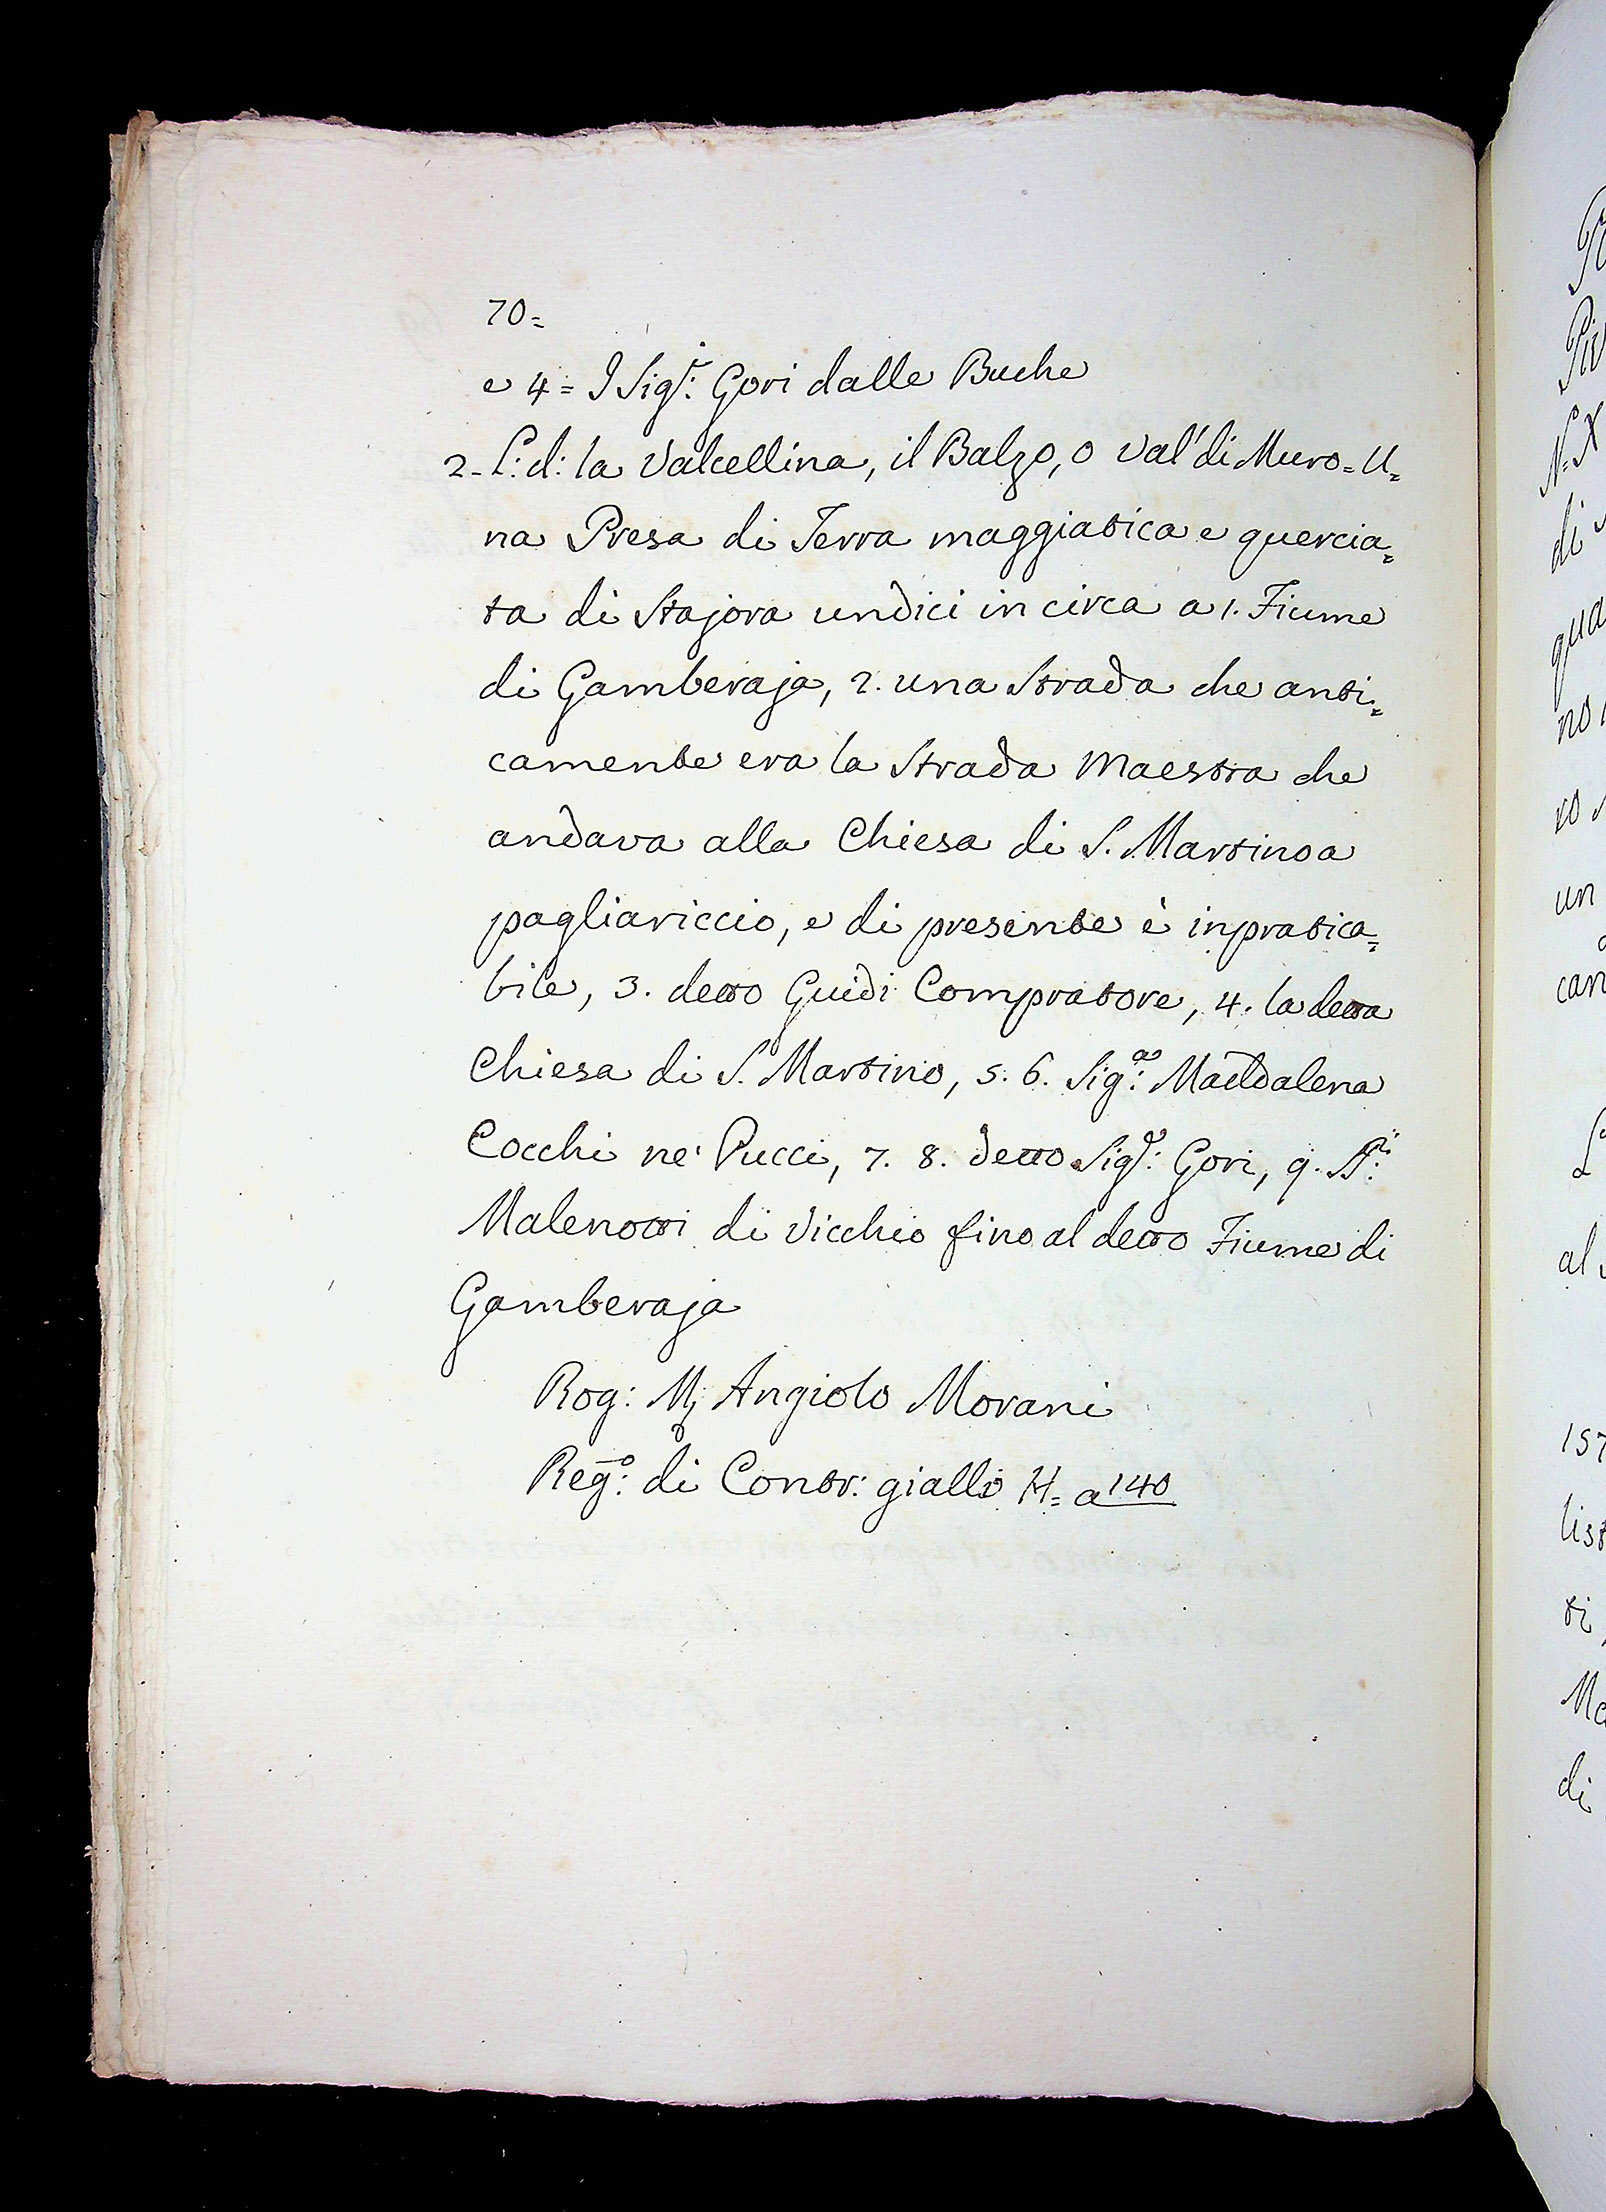 70=
e 4= I Sig.ri Gori dalle Buche
2- L: d: la Valcellina, il Balzo, o Val' di Muro= U=
na Presa di Terra maggiatica e quercia=
ta di Stajora undici in circa a 1. Fiume
di Gamberaja, 2. una Strada che anti=
camente era la Strada Maestra che
andava alla Chiesa di S. Martino a
pagliariccio, e di presente è inpratica=
bile, 3. detto Guidi Compratore, 4. la detta
Chiesa di S. Martino, 5. 6. Sig:ra Maddalena
Cocchi ne' Pucci, 7. 8. detto Sig:r Gori, 9.
Malenotti di Vicchio fino al detto Fiume di
Gamberaja
Rog: M; Angiolo Morani
Reg:o di Contr: giallo H= a 140
Pi
N: X
di
qua
no
ro
un
can
L
al
157
list
ti
Ma
di